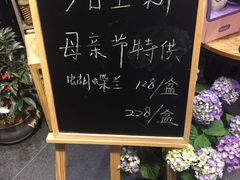 母亲节特供
蝴蝶兰 128/盒
228/盒